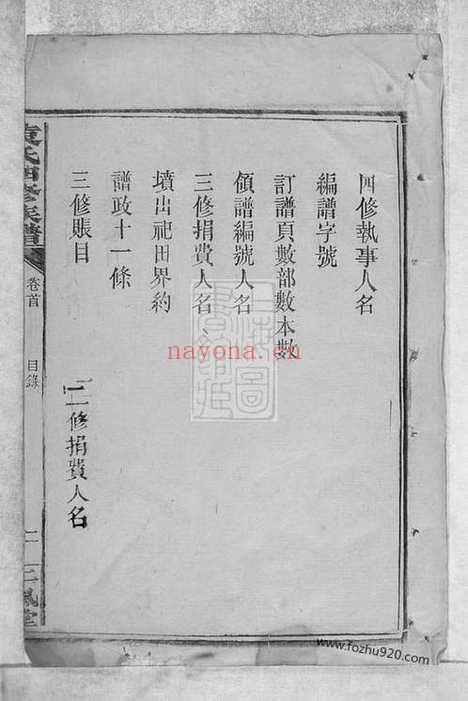 四修執事人名
編譜字號
訂譜頁數部數本數
領譜編號人名
三修捐費人名、
墳山祀田界約
譜政十一條
三修賬目
二修捐費人名
袁氏四修族譜
卷首
目錄
二
nayona.cn
www.fozhu920.com